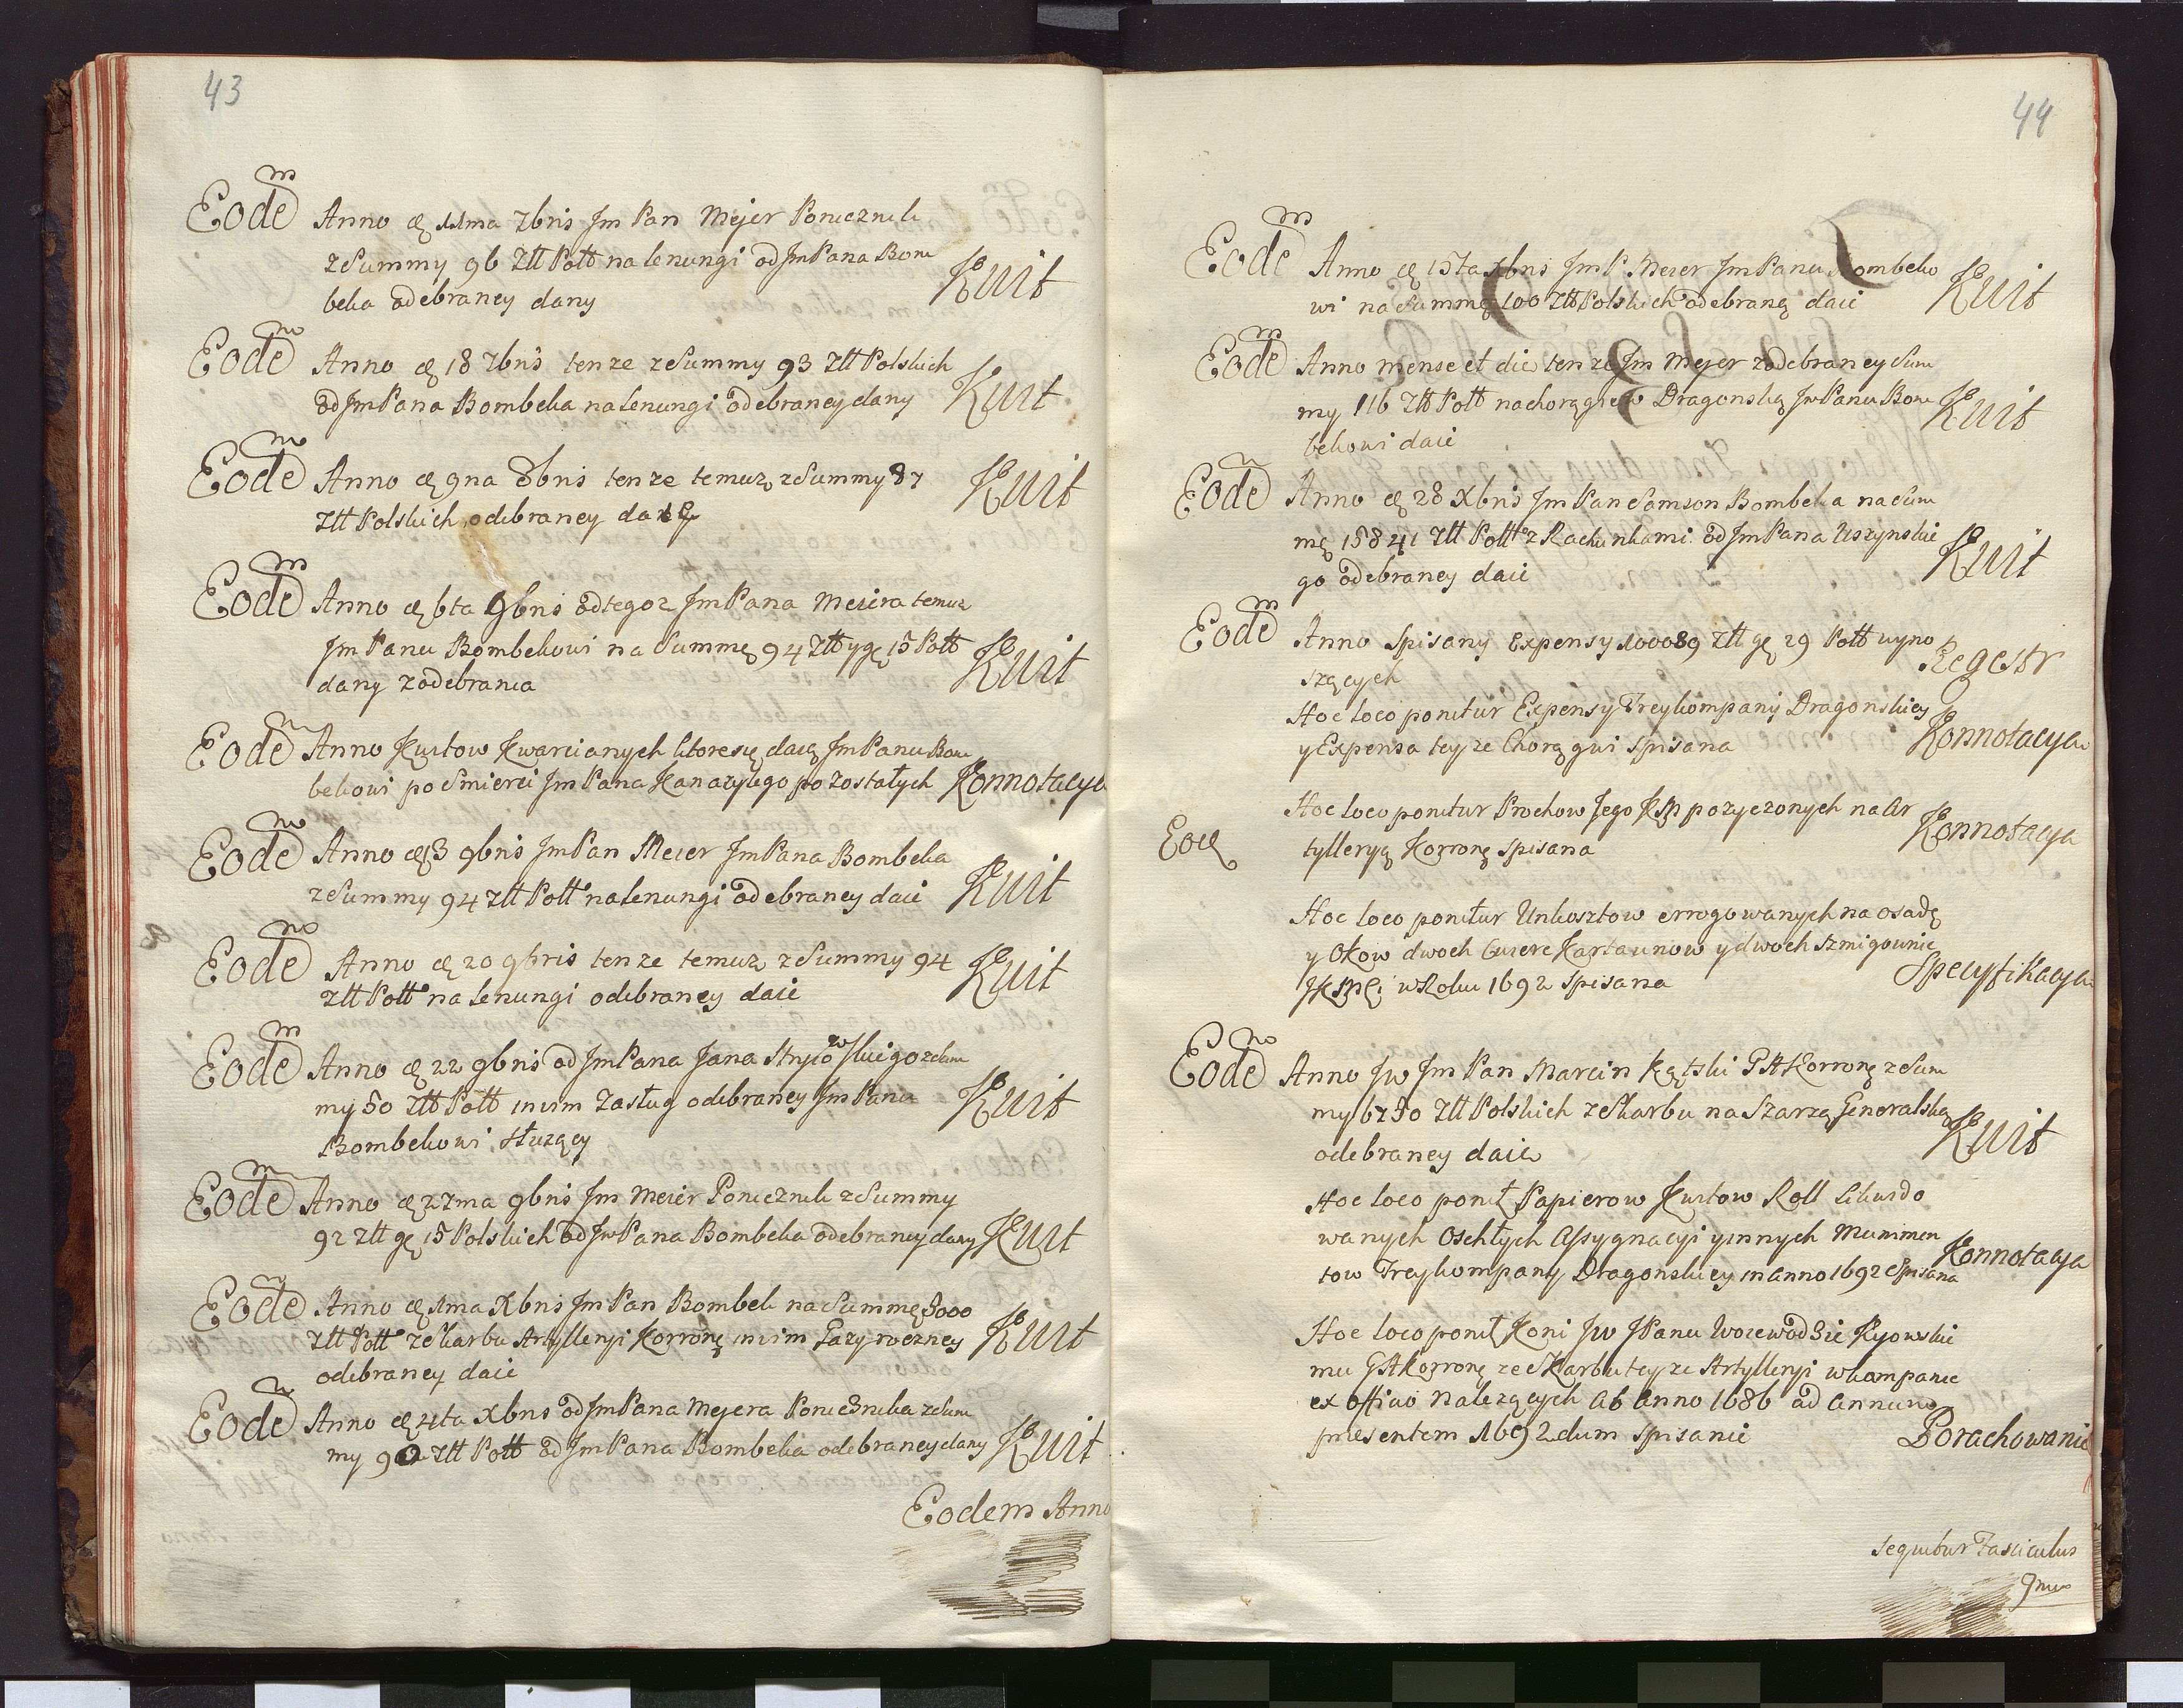 43
Eodem Anno d. 11ma 7bris Jm Pan Mejer Porucznik
z Summy 96 Złł Poll na lenungi od Jm Pana Bom
belia odebraney dany Kwit
Eodem Anno d. 18 7bris tenze z Summy 93 Złł Polskich
od Jm Pana Bombelia na lenungi odebraney dany Kwit
Eodem Anno d. 9na 8bris tenze temuz z Summy 87
Złł Polskich odebraney Kwit
Eodem Anno d. 6ta 9bris od tegoz Jm Pana Meiera temuz
Jm Panu Bombekowi na Summę 94 Złł y g. 15 Poll
dany z odebrania Kwit
Eodem Anno Kwitow Kwarcianych ktore się daią Jm Panu Bom
bekowi po Smierci Jm Pana Kanazylego pozostałych Konnotacya
Eodem Anno d. 13 9bris Jm Pan Meier Jm Pana Bombelia
z Summy 94 Złł Poll na lenungi odebraney daie Kwit
Eodem Anno d. 20 9bris tenze temuz z Summy 94
Złł Poll na lenungi odebraney daie Kwit
Eodem Anno d. 22 9bris od Jm Pana Jana z Sum
my 50 Złł Poll in vim Zasług odebraney Jm Pana
Bombekowi służący Kwit
Eodem Anno d. 27ma 9bris Jm Meier Porucznik z Summy
92 Złł g. 15 Polskich od Jm Pana Bombelia odebraney dany Kwit
Eodem Anno d. 1ma Xbris Jm Pan Bombek na Summę 3000
Złł Poll ze Skarbu Artylleryi Korronę in vim Gazy roczney
odebraney daie Kwit
Eodem Anno d. 4ta Xbris od Jm Pana Mejera Porucznika z Sum
my 90 Złł Poll od Jm Pana Bombelia odebraney dany Kwit
Eodem Anno
44
Eodem Anno d. 15ta Xbris Jm P. Meier Jm Panu Bombeko
wi na Summę 100 Złł Polskich odebraną daie Kwit
Eodem Anno mense et die tenze Jm Mejer z odebraney Sum
my 116 Złł Poll na chorągiew Dragonską Jm Panu Bom
bekowi daie Kwit
Eodem Anno d. 28 Xbris Jm Pan Samson Bombelia na Sum
mę 15841 Złł Poll z Rachunkami od Jm Pana Uszynskie
go odebraney daie Kwit
Eodem Anno Spisany Expensy 100089 Złł g. 29 Poll wyno
szących Regestr
Hoc loco ponitur Expensy Freykompanij Dragonskiey
y Expensa teyze Chorągwi spisana Konnotacya
Hoc loco ponitur Prochow Jego pozyczonych na Ar
tylleryą Korronę spisana Konnotacya
Hoc loco ponitur Unkosztow errogowanych na osadę
y Okow dwoch Kartaunow y dwoch szmigownic
w Roku 1692 spisana Specyfikacya
Eodem Anno Jw Jm Pan Marcin Kątski G A Korronę z Sum
my 6750 Złł Polskich ze Skarbu na Szarzą Generalską
odebraney daie Kwit
Hoc loco ponit Papierow Kwitow Roll Likwido
wanych Oschłych Assygnacyi y innych Munimen
tow Freykompany Dragonskiey in Anno 1692 Spisana Konnotacya
Hoc loco ponit Koni Jw JPanu Woiewodzie Kyowskie
mu G A Korronę ze Skarbu teyze Artylleryi w kampanie
ex officio nalezących ab Anno 1686 ad Annum
presentem 1692dum spisanie Porachowanie
sequitur Fasciculus
9nus